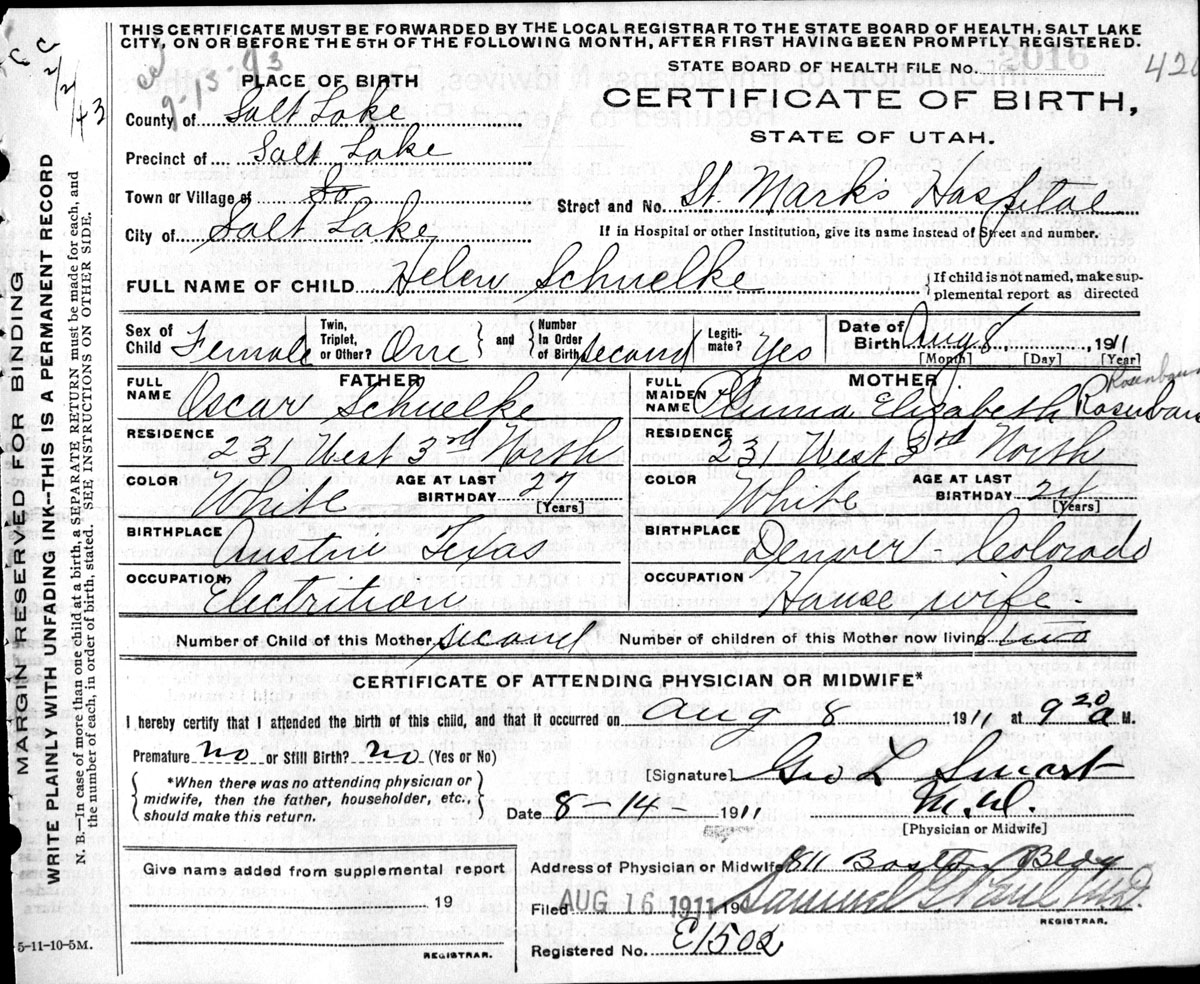 THIS CERTIFICATE MUST BE FORWARDED BY THE LOCAL REGISTRAR TO THE STATE BOARD OF HEALTH, SALT LAKE
CITY, ON OR BEFORE THE 5TH OF THE FOLLOWING MONTH, AFTER FIRST HAVING BEEN PROMPTLY REGISTERED.
STATE BOARD OF HEALTH FILE No. 2016
9-13-43
PLACE OF BIRTH
CERTIFICATE OF BIRTH,
STATE OF UTAH.
County of Salt Lake
Precinct of Salt Lake
Town or Village of So
Street and No. St. Mark's Hospital
City of Salt Lake
If in Hospital or other Institution, give its name instead of Street and number.
FULL NAME OF CHILD Helen Schuelke
If child is not named, make sup-
plemental report as directed
Sex of Child Female Twin, Triplet, or Other? One and Number In Order of Birth second Legiti-mate? Yes Date of Birth Aug 8, 1911
[Month] [Day] [Year]
FATHER MOTHER
FULL NAME Oscar Schuelke FULL MAIDEN NAME Elizabeth
RESIDENCE 231 West 3rd North RESIDENCE 231 West 3rd North
COLOR White AGE AT LAST BIRTHDAY 27 [Years] COLOR White AGE AT LAST BIRTHDAY 24 [Years]
BIRTHPLACE Austin Texas BIRTHPLACE Denver Colorado
OCCUPATION Electrition OCCUPATION House wife.
Number of Child of this Mother second Number of children of this Mother now living two
CERTIFICATE OF ATTENDING PHYSICIAN OR MIDWIFE*
I hereby certify that I attended the birth of this child, and that it occurred on Aug 8 1911 at 9 20 a M.
Premature no or Still Birth? no (Yes or No)
[Signature] Geo L Smart
M.D.
[Physician or Midwife]
*When there was no attending physician or
midwife, then the father, householder, etc.,
should make this return.
Date 8-14- 1911
Give name added from supplemental report
19
REGISTRAR.
Address of Physician or Midwife 811 Boston Bldg
Filed AUG 16 1911 19 Samuel G Paul M.D.
REGISTRAR.
Registered No. E1502
5-11-10-5M.
MARGIN RESERVED FOR BINDING
WRITE PLAINLY WITH UNFADING INK--THIS IS A PERMANENT RECORD
N. B.—In case of more than one child at a birth, a SEPARATE RETURN must be made for each, and
the number of each, in order of birth, stated. SEE INSTRUCTIONS ON OTHER SIDE.